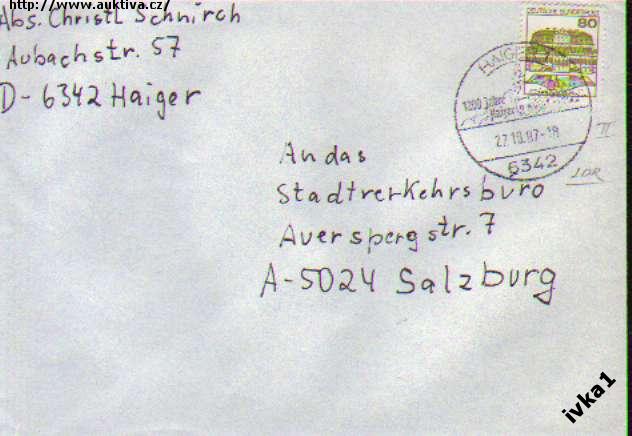 http://www.auktiva.cz/
Abs. Christl Schnirch
Aubachstr. 57
D-6342 Haiger
DEUTSCHE BUNDESPOST
80
HAIGER
1200 Jahre
27.10.87-18
6342
II
LDR
An das
Stadtverkehrsbüro
Auerspergstr. 7
A-5024 Salzburg
ivka1